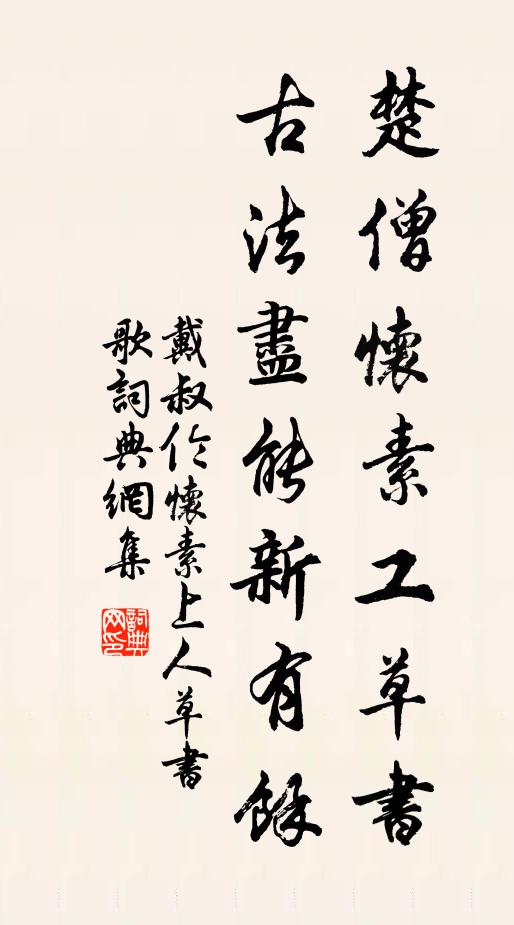 楚僧懷素工草書
古法盡能新有餘
戴叔伦懷素上人草書
歌詞典網集
詞典网印